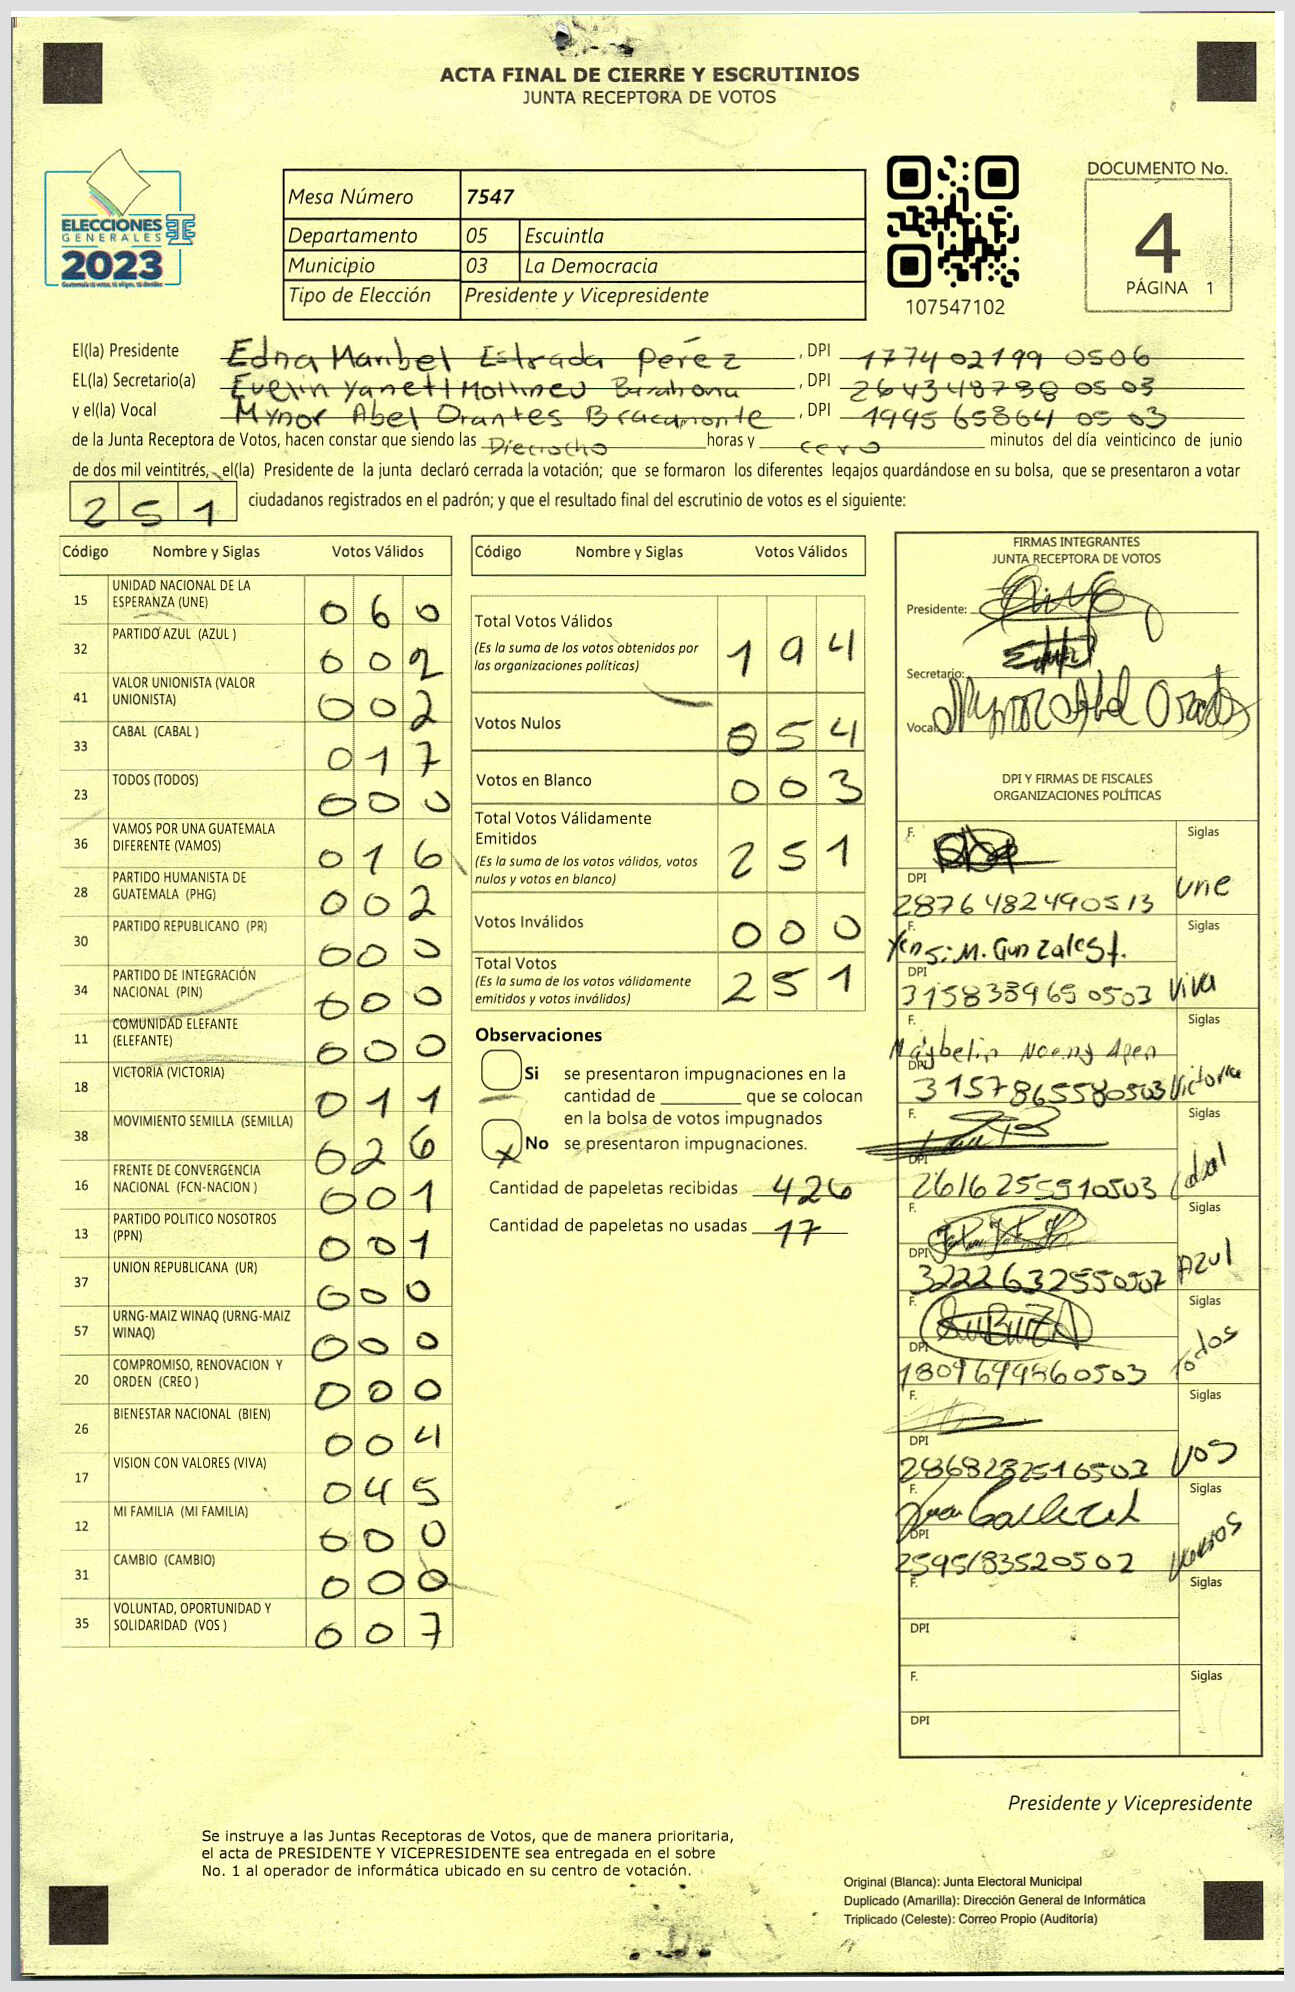 ACTA FINAL DE CIERRE Y ESCRUTINIOS
JUNTA RECEPTORA DE VOTOS
ELECCIONES
GENERALES
2023
Mesa Número 7547
Departamento 05 Escuintla
Municipio 03 La Democracia
Tipo de Elección Presidente y Vicepresidente
107547102
DOCUMENTO No.
4
PÁGINA 1
El(la) Presidente Edna Maribel Estrada Peréz, DPI 177402199 0506
EL(la) Secretario(a) Evelin Yanett, DPI 264348738 0503
y el(la) Vocal Mynor Abel Orantes Bracamonte, DPI 199565864 0503
de la Junta Receptora de Votos, hacen constar que siendo las Dieciocho horas y cero minutos del día veinticinco de junio
de dos mil veintitrés, el(la) Presidente de la junta declaró cerrada la votación; que se formaron los diferentes legajos quardándose en su bolsa, que se presentaron a votar
251 ciudadanos registrados en el padrón; y que el resultado final del escrutinio de votos es el siguiente:
Código Nombre y Siglas Votos Válidos
15 UNIDAD NACIONAL DE LA ESPERANZA (UNE) 060
32 PARTIDO AZUL (AZUL ) 002
41 VALOR UNIONISTA (VALOR UNIONISTA) 002
33 CABAL (CABAL ) 017
23 TODOS (TODOS) 000
36 VAMOS POR UNA GUATEMALA DIFERENTE (VAMOS) 016
28 PARTIDO HUMANISTA DE GUATEMALA (PHG) 002
30 PARTIDO REPUBLICANO (PR) 000
34 PARTIDO DE INTEGRACIÓN NACIONAL (PIN) 000
11 COMUNIDAD ELEFANTE (ELEFANTE) 000
18 VICTORIA (VICTORIA) 011
38 MOVIMIENTO SEMILLA (SEMILLA) 026
16 FRENTE DE CONVERGENCIA NACIONAL (FCN-NACION ) 001
13 PARTIDO POLITICO NOSOTROS (PPN) 001
37 UNION REPUBLICANA (UR) 000
57 URNG-MAIZ WINAQ (URNG-MAIZ WINAQ) 000
20 COMPROMISO, RENOVACION Y ORDEN (CREO ) 000
26 BIENESTAR NACIONAL (BIEN) 004
17 VISION CON VALORES (VIVA) 045
12 MI FAMILIA (MI FAMILIA) 000
31 CAMBIO (CAMBIO) 000
35 VOLUNTAD, OPORTUNIDAD Y SOLIDARIDAD (VOS ) 007
Código Nombre y Siglas Votos Válidos
Total Votos Válidos 194
(Es la suma de los votos obtenidos por
las organizaciones políticas)
Votos Nulos 054
Votos en Blanco 003
Total Votos Válidamente
Emitidos 251
(Es la suma de los votos válidos, votos
nulos y votos en blanco)
Votos Inválidos 000
Total Votos 251
(Es la suma de los votos válidamente
emitidos y votos inválidos)
Observaciones
Si se presentaron impugnaciones en la
cantidad de ________ que se colocan
en la bolsa de votos impugnados
x No se presentaron impugnaciones.
Cantidad de papeletas recibidas 426
Cantidad de papeletas no usadas 17
FIRMAS INTEGRANTES
JUNTA RECEPTORA DE VOTOS
Presidente:
Secretario:
Vocal: Mynor Abel Orantes
DPI Y FIRMAS DE FISCALES
ORGANIZACIONES POLÍTICAS
F. Siglas
DPI 2876482490513 une
F. Yensi M. Gonzales Siglas
DPI 3158389650503 Viva
F. Maybelin Siglas
DPI 3157865580503 Victoria
F. Siglas
DPI 2616255910503 Cabal
F. Siglas
DPI 3222632550502 Azul
F. Siglas
DPI 1809699860503 Todos
F. Siglas
DPI 2868232516503 VOS
F. Siglas
DPI 2595183520502 Vamos
F. Siglas
DPI
F. Siglas
DPI
Presidente y Vicepresidente
Se instruye a las Juntas Receptoras de Votos, que de manera prioritaria,
el acta de PRESIDENTE Y VICEPRESIDENTE sea entregada en el sobre
No. 1 al operador de informática ubicado en su centro de votación.
Original (Blanca): Junta Electoral Municipal
Duplicado (Amarilla): Dirección General de Informática
Triplicado (Celeste): Correo Propio (Auditoría)